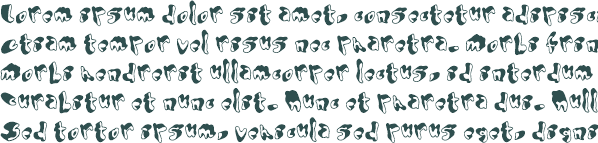 Lorem ipsum dolor sit amet, consectetur adipisc
Etiam tempor vel risus nec pharetra. Morbi frin
Morbi hendrerit ullamcorper lectus, id interdum
Curabitur et nunc elit. Nunc et pharetra dui. Null
Sed tortor ipsum, vehicula sed purus eget, digni